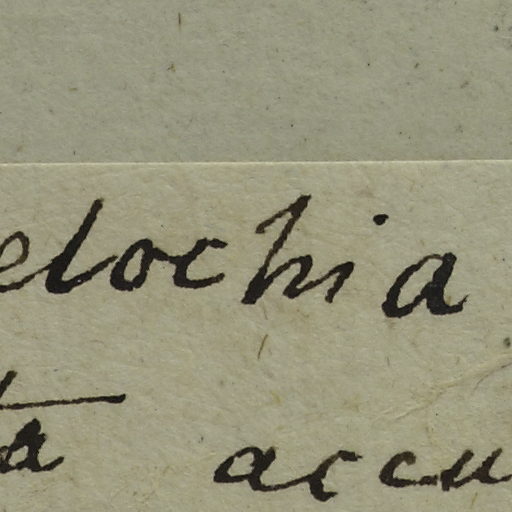 elochia
ta accu